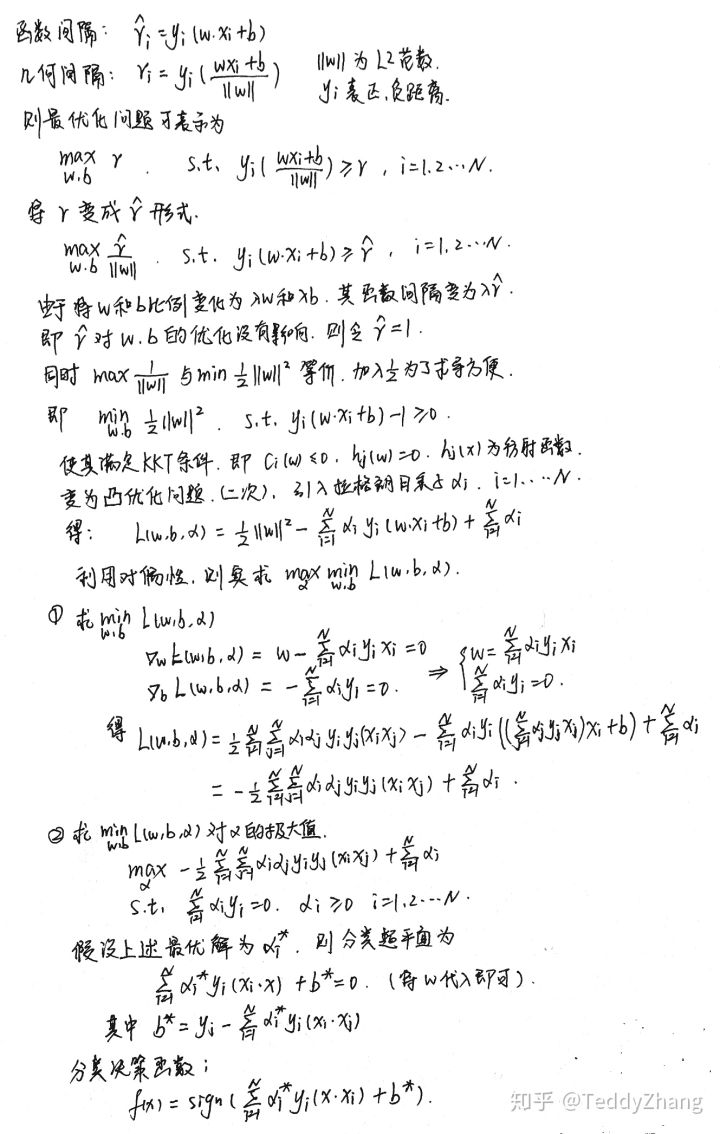 函数间隔: γ̂ᵢ = yᵢ(w·xᵢ+b)
几何间隔: γᵢ = yᵢ((wxᵢ+b)/||w||) ||w||为L2范数.
yᵢ表正.负距离.
则最优化问题可表示为
max_{w.b} γ. s.t. yᵢ((wxᵢ+b)/||w||) ≥ γ, i=1.2…N.
将γ变成γ̂形式.
max_{w.b} γ̂/||w||. s.t. yᵢ(w·xᵢ+b) ≥ γ̂, i=1,2…N.
由于将w和b比例变化为λw和λb. 其函数间隔变为λγ̂.
即γ̂对w.b的优化没有影响. 则令γ̂=1.
同时 max 1/||w|| 与 min ½||w||² 等价. 加入½为了求导方便.
即 min_{w.b} ½||w||². s.t. yᵢ(w·xᵢ+b)-1≥0.
使其满足KKT条件. 即 Cᵢ(w)≤0, hⱼ(w)=0. hⱼ(x)为仿射函数.
变为凸优化问题.(二次), 引入拉格朗日乘子αᵢ. i=1…N.
得: L(w.b,α) = ½||w||² - Σ_{i=1}^N αᵢyᵢ(w·xᵢ+b) + Σ_{i=1}^N αᵢ
利用对偶性, 则要求 max_α min_{w.b} L(w.b,α).
① 求 min_{w.b} L(w,b,α)
∇_w L(w,b,α) = w - Σ_{i=1}^N αᵢyᵢxᵢ = 0 ⇒ { w = Σ_{i=1}^N αᵢyᵢxᵢ
∇_b L(w,b,α) = -Σ_{i=1}^N αᵢyᵢ = 0. Σ_{i=1}^N αᵢyᵢ = 0.
得 L(w,b,α) = ½ Σ_{i=1}^N Σ_{j=1}^N αᵢαⱼyᵢyⱼ(xᵢxⱼ) - Σ_{i=1}^N αᵢyᵢ((Σ_{j=1}^N αⱼyⱼxⱼ)xᵢ+b) + Σ_{i=1}^N αᵢ
= -½ Σ_{i=1}^N Σ_{j=1}^N αᵢαⱼyᵢyⱼ(xᵢxⱼ) + Σ_{i=1}^N αᵢ.
② 求 min_{w.b} L(w,b,α) 对α的极大值.
max_α -½ Σ_{i=1}^N Σ_{j=1}^N αᵢαⱼyᵢyⱼ(xᵢxⱼ) + Σ_{i=1}^N αᵢ
s.t. Σ_{i=1}^N αᵢyᵢ = 0. αᵢ≥0 i=1,2…N.
假设上述最优解为αᵢ*. 则分类超平面为
Σ_{i=1}^N αᵢ*yᵢ(xᵢ·x) + b* = 0. (将w代入即可).
其中 b* = yⱼ - Σ_{i=1}^N αᵢ*yᵢ(xᵢ·xⱼ)
分类决策函数;
f(x) = sign(Σ_{i=1}^N αᵢ*yᵢ(x·xᵢ) + b*).
知乎 @TeddyZhang